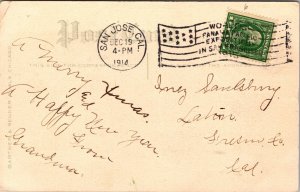 Post Card
SAN JOSE, CAL.
DEC 19
4-PM
1914
WO
PANA
EXP
IN SA
A Merry Xmas.
Ed
A Happy New Year.
from
Grandma.
Inez Saulsbury
Laton,
Fresno Co.
Cal.